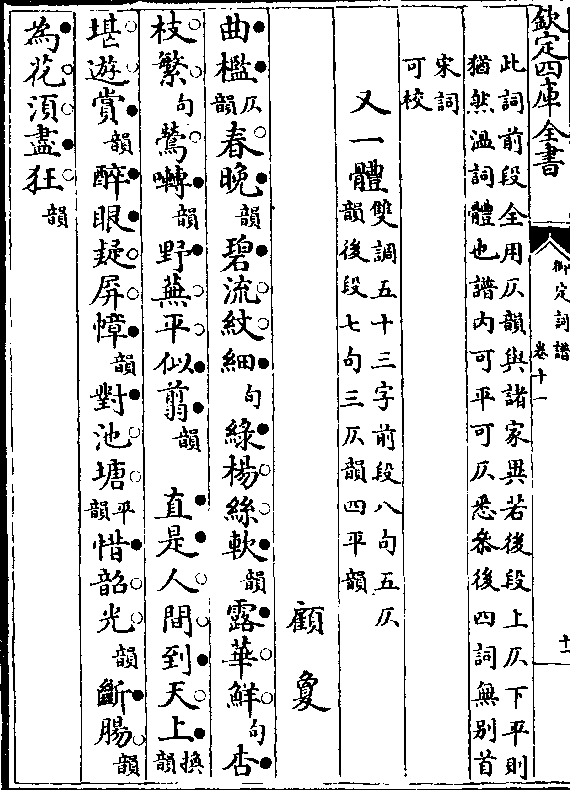 欽定四庫全書
御定詞譜
卷十一
十一
此詞前段全用仄韻與諸家異若後段上仄下平則
猶然溫詞體也譜內可平可仄悉叅後四詞無别首
宋詞
可校
又一體
雙調五十三字前段八句五仄
韻後段七句三仄韻四平韻
顧敻
曲檻仄韻春晚韻碧流紋細句綠楊絲軟韻露華鮮句杏
枝繁句鶯囀韻野蕪平似翦韻 直是人間到天上換韻
堪遊賞韻醉眼疑屏幛韻對池塘平韻惜韶光韻斷腸韻
為花須盡狂韻